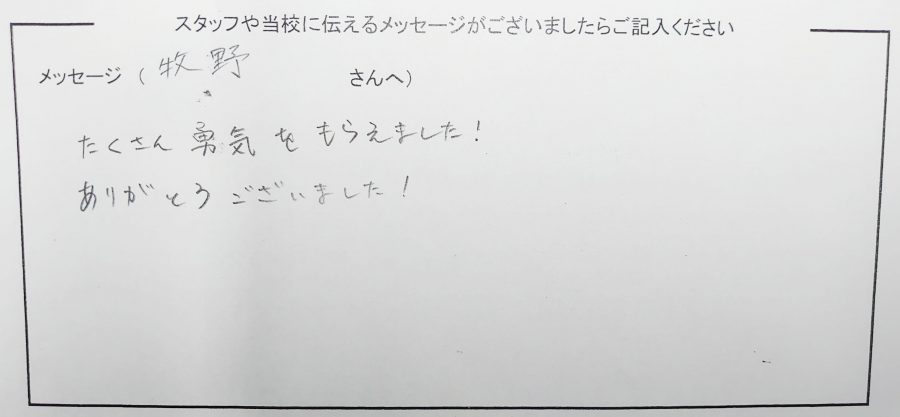 スタッフや当校に伝えるメッセージがございましたらご記入ください
メッセージ（ 牧野 さんへ）
たくさん 勇気 を もらえました！
ありがとう ございました！